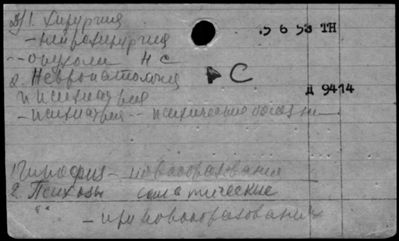 1. Хирургия
5 6 53 ТН
- нейрохирургия
- опухоли Н С
2. Невропатология
С
и психиатрия
Д 9414
- психиатрия -- психические
1. Гипофиз - новообразования
2. Психозы соматические
- при новообразованиях